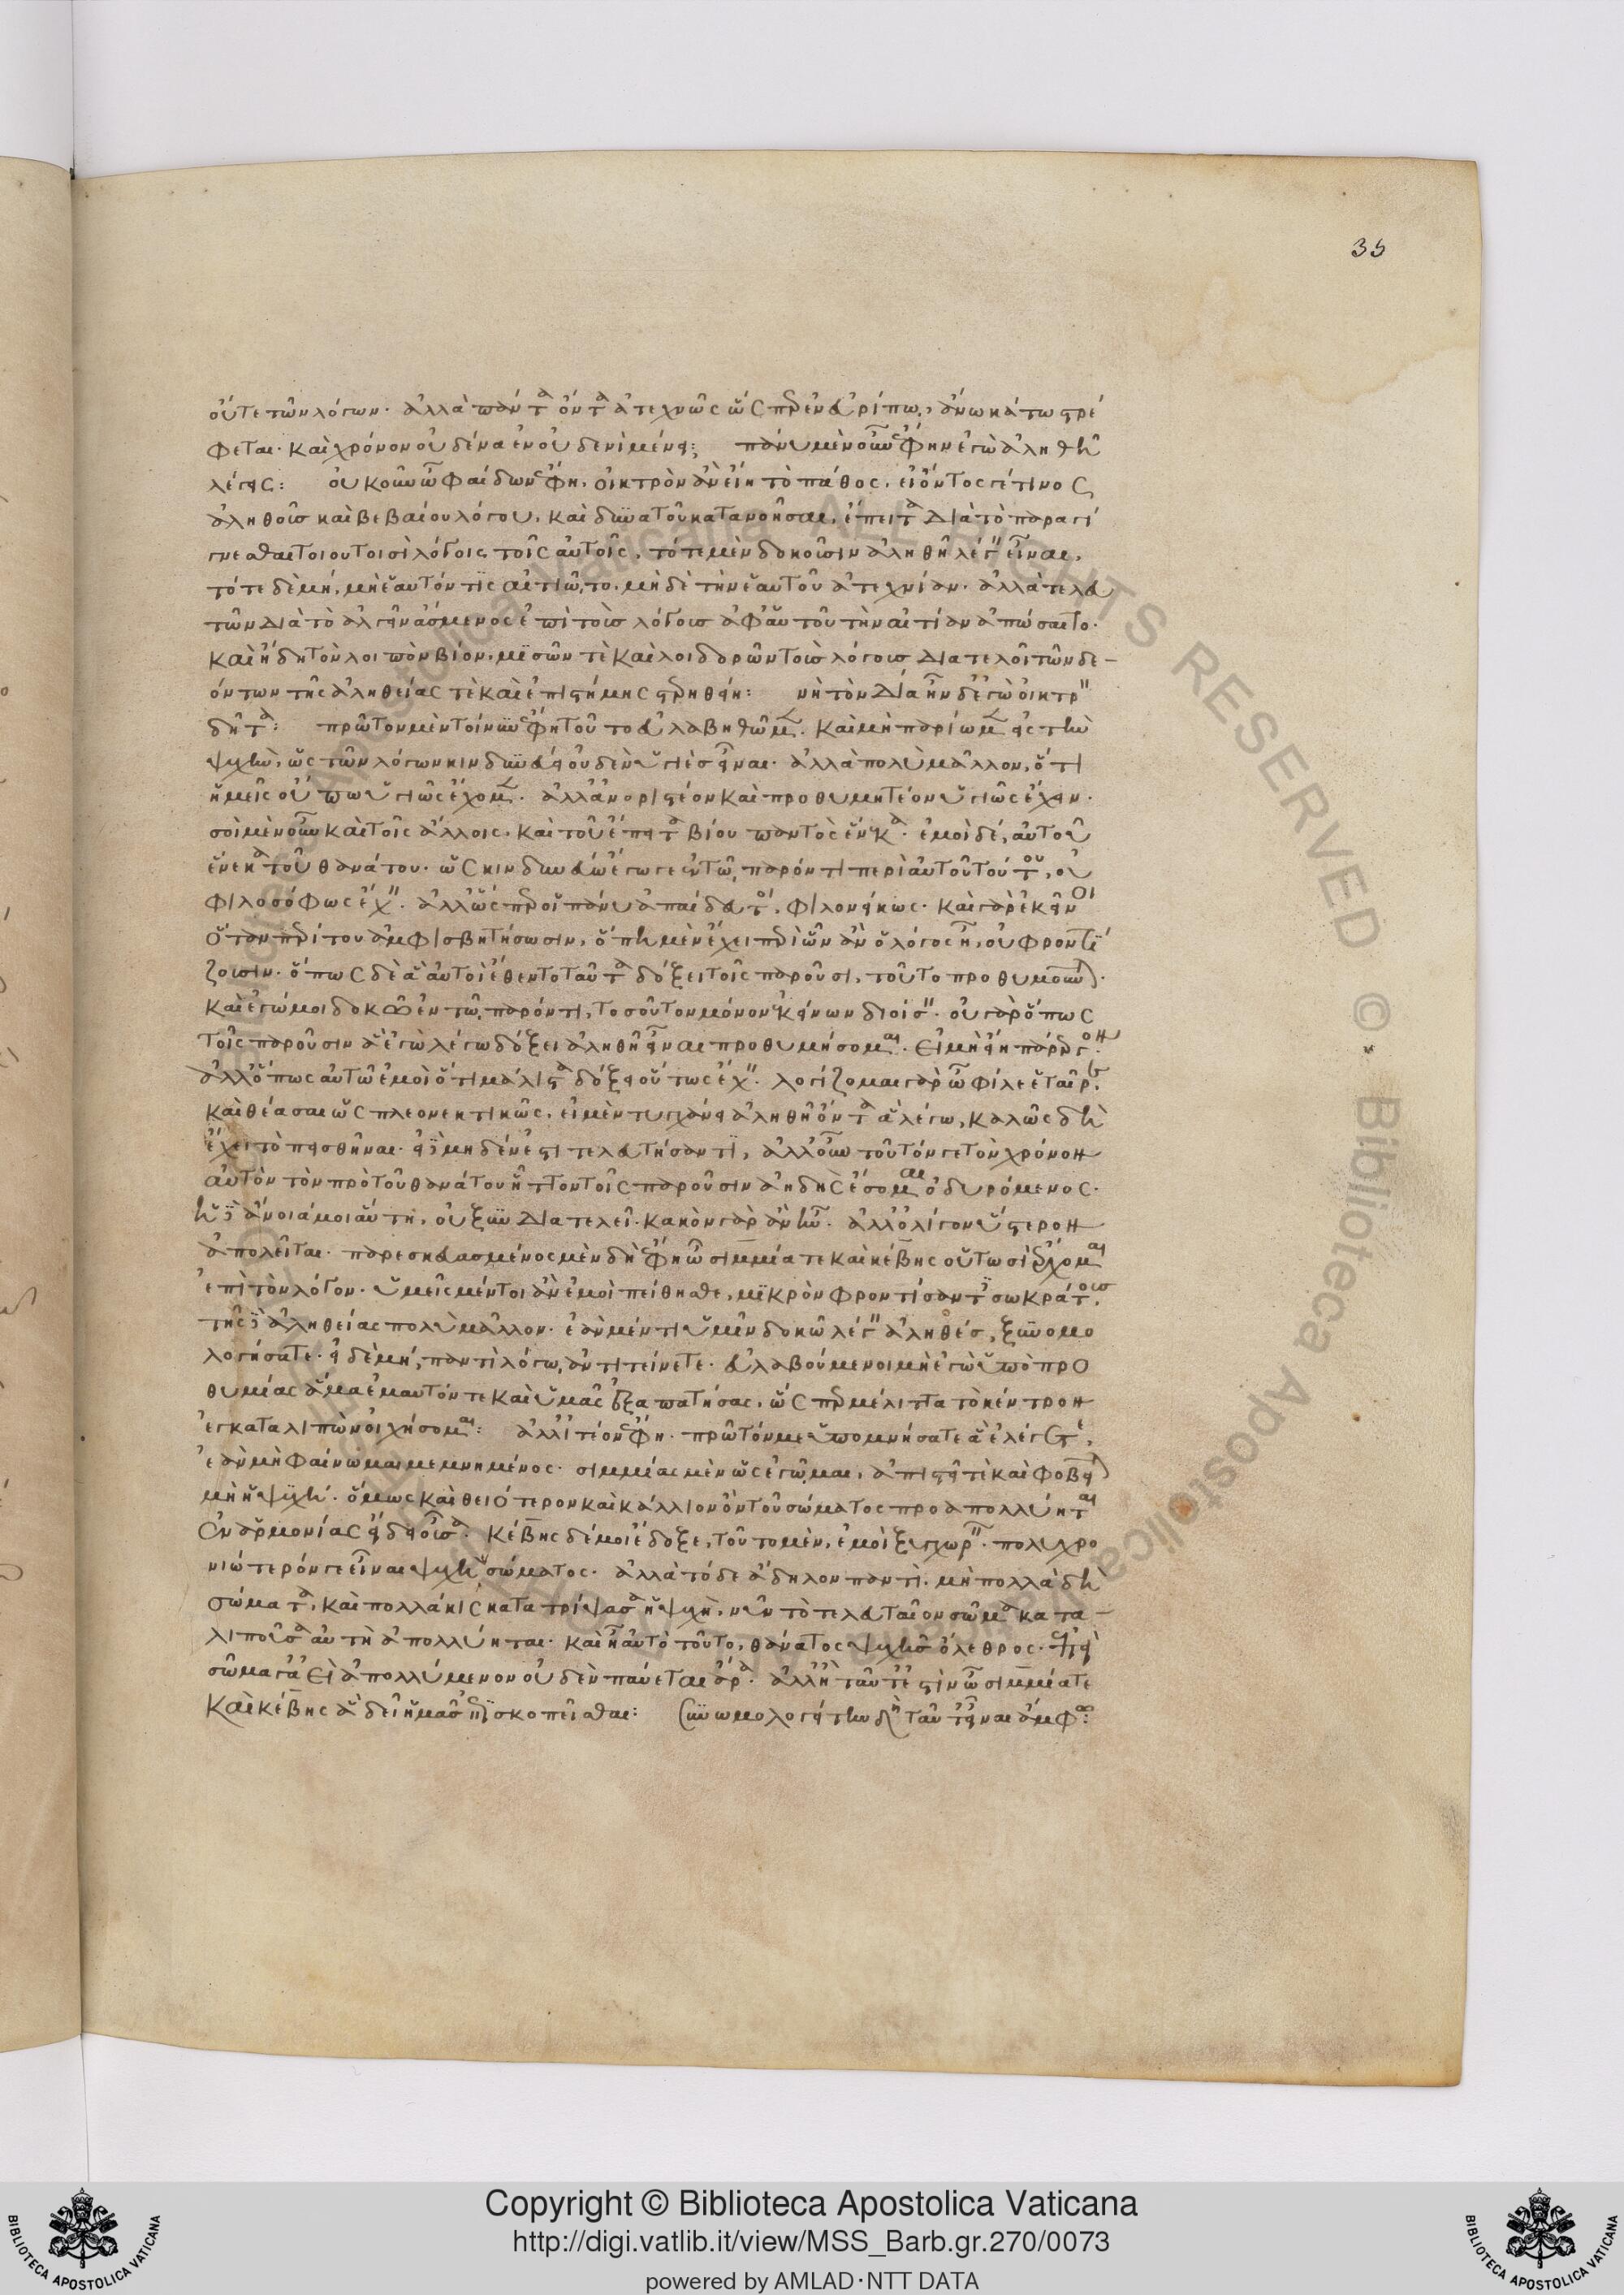 35
οὔτε τῶν λόγων· ἀλλὰ πάντα ὄντα ἀτεχνῶς ὥσπερ ἐν εὐρίπω, ἄνω κάτω στρέ
φεται· καὶ χρόνον οὐδένα ἐν οὐδενὶ μένει; πάνυ μὲν οὖν ἔφην ἐγὼ ἀληθῆ
λέγεις: οὐκοῦν ὦ φαίδων ἔφη, οἰκτρὸν ἂν εἴη τὸ πάθος, εἰ ὄντος γέ τινος
ἀληθοῦς καὶ βεβαίου λόγου, καὶ δυνατοῦ κατανοῆσαι, ἔπειτα διὰ τὸ παραγί
γνεσθαι τοιούτοισὶ λόγοις τοῖς αὐτοῖς, τότε μὲν δοκοῦσιν ἀληθῆ λέγειν εἶναι,
τότε δὲ μή, μὴ ἑαυτόν τις αἰτιῷτο, μὴ δὲ τὴν ἑαυτοῦ ἀτεχνίαν· ἀλλὰ τελευ
τῶν διὰ τὸ ἀλγεῖν ἄσμενος ἐπὶ τοὺς λόγους ἀφ' αὑτοῦ τὴν αἰτίαν ἀπώσαιτο·
καὶ ἤδη τὸν λοιπὸν βίον, μισῶν τὲ καὶ λοιδορῶν τοὺς λόγους διατελοῖ τῶν δε–
όντων τῆς ἀληθείας τὲ καὶ ἐπιστήμης στερηθείη: νὴ τὸν Δία ἦν δ' ἐγὼ οἰκτρ
δῆτα: πρῶτον μὲν τοίνυν ἔφη τοῦτο εὐλαβηθῶμεν. καὶ μὴ παρίωμεν εἰς τὴν
ψυχὴν, ὡς τῶν λόγων κινδυνεύει οὐδὲν ὑγιὲς εἶναι· ἀλλὰ πολὺ μᾶλλον, ὅτι
ἡμεῖς οὔπω ὑγιῶς ἔχομεν. ἀλλ' ἀνδριστέον καὶ προθυμητέον ὑγιῶς ἔχειν·
σοὶ μὲν οὖν καὶ τοῖς ἄλλοις, καὶ τοῦ ἔπειτα βίου παντὸς ἕνεκα· ἐμοὶ δὲ, αὐτοῦ
ἕνεκα τοῦ θανάτου· ὡς κινδυνεύω ἔγωγε ἐν τῷ παρόντι περὶ αὐτοῦ τούτου, οὐ
φιλοσόφως ἔχειν. ἀλλ' ὥσπερ οἱ πάνυ ἀπαίδευτοι, φιλονείκως· καὶ γὰρ ἐκεῖνοι
ὅταν περί του ἀμφισβητήσωσιν, ὅπη μὲν ἔχει περὶ ὧν ἂν ὁ λόγος ἦ, οὐ φροντί
ζουσιν· ὅπως δὲ ἃ αὐτοὶ ἔθεντο ταῦτα δόξει τοῖς παροῦσι, τοῦτο προθυμοῦνται·
καὶ ἐγώ μοι δοκῶ ἐν τῷ παρόντι, τοσοῦτον μόνον ἐκείνων διοίσειν· οὐ γὰρ ὅπως
τοῖς παροῦσιν ἃ ἐγὼ λέγω δόξει ἀληθῆ εἶναι προθυμήσομαι. εἰ μὴ εἴη πάρεργον
ἀλλ' ὅπως αὐτῷ ἐμοὶ ὅτι μάλιστα δόξει οὕτως ἔχειν. λογίζομαι γὰρ ὦ φίλε ἑταῖρε.
καὶ θέασαι ὡς πλεονεκτικῶς, εἰ μὲν τυγχάνει ἀληθῆ ὄντα ἃ λέγω, καλῶς δὴ
ἔχει τὸ πεισθῆναι· εἰ δὲ μηδέν ἐστι τελευτήσαντι, ἀλλ' οὖν τοῦτόν γε τὸν χρόνον
αὐτὸν τὸν πρὸ τοῦ θανάτου ἧττον τοῖς παροῦσιν ἀηδὴς ἔσομαι ὀδυρόμενος·
ἡ δὲ ἄνοιά μοι αὕτη, οὐ ξυνδιατελεῖ. κακὸν γὰρ ἂν ἦν. ἀλλ' ὀλίγον ὕστερον
ἀπολεῖται. παρεσκευασμένος μὲν δὴ ἔφη ὦ σιμμία τε καὶ κέβης οὑτωσὶ ἔρχομαι
ἐπὶ τὸν λόγον. ὑμεῖς μέντοι ἂν ἐμοὶ πείθησθε, μικρὸν φροντίσαντες σωκράτους,
τῆς δὲ ἀληθείας πολὺ μᾶλλον· ἐὰν μέν τι ὑμῖν δοκῶ λέγειν ἀληθές, ξυνομο
λογήσατε· εἰ δὲ μή, παντὶ λόγω ἀντιτείνετε· εὐλαβούμενοι μὴ ἐγὼ ὑπὸ προ
θυμίας ἅμα ἐμαυτόν τε καὶ ὑμᾶς ἐξαπατήσας, ὥσπερ μέλιττα τὸ κέντρον
ἐγκαταλιπὼν οἰχήσομαι: ἀλλ' ἰτέον ἔφη. πρῶτόν με ὑπομνήσατε ἃ ἐλέγετε,
ἐὰν μὴ φαίνωμαι μεμνημένος· σιμμίας μὲν ὡς ἐγῶμαι, ἀπιστεῖ τὲ καὶ φοβεῖται
μὴ ἡ ψυχὴ. ὅμως καὶ θειότερον καὶ κάλλιον ὂν τοῦ σώματος προαπολλύηται
ἐν ἁρμονίας εἴδει οὖσα. κέβης δέ μοι ἔδοξε, τοῦτο μὲν, ἐμοὶ ξυγχωρεῖν. πολυχρο
νιώτερόν γε εἶναι ψυχὴν σώματος. ἀλλὰ τόδε ἄδηλον παντὶ. μὴ πολλὰ δὴ
σώματα, καὶ πολλάκις κατατρίψασα ἡ ψυχὴ, νῦν τὸ τελευταῖον σῶμα κατα–
λιποῦσα αὐτὴ ἀπολλύηται. καὶ ἦ αὐτὸ τοῦτο, θάνατος ψυχῆς ὄλεθρος. ἐπεὶ
σῶμά γε ἀεὶ ἀπολλύμενον οὐδὲν παύεται ἆρα. ἀλλ' ἢ ταῦτ' ἐστὶν ὦ σιμμία τε
καὶ κέβης ἃ δεῖ ἡμᾶς ἐπισκοπεῖσθαι: συνωμολογείτην δὴ ταῦτ' εἶναι ἄμφω:
Copyright © Biblioteca Apostolica Vaticana
http://digi.vatlib.it/view/MSS_Barb.gr.270/0073
powered by AMLAD·NTT DATA
BIBLIOTECA APOSTOLICA VATICANA
BIBLIOTECA APOSTOLICA VATICANA